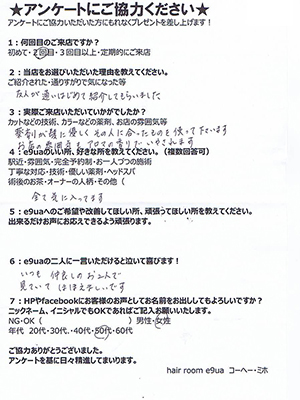 ★アンケートにご協力ください★
アンケートにご協力いただいた方にもれなくプレゼントを差し上げます！
1：何回目のご来店ですか？
初めて・2回目・3回目以上・定期的にご来店
2：当店をお選びいただいた理由を教えてください。
ご紹介された・通りすがりで気になった等
友人が通いはじめて紹介してもらいました
3：実際ご来店いただいていかがでしたか？
カットなどの技術、カラーなどの薬剤、お店の雰囲気等
薬剤が髪に優しく その人に合ったものを使って下さいます
お店の雰囲気も アロマの香りで いやされます
4：e9uaのいい所、好きな所を教えてください。（複数回答可）
駅近・雰囲気・完全予約制・お一人づつの施術
丁寧な対応・技術・優しい薬剤・ヘッドスパ
術後のお茶・オーナーの人柄・その他（
全て気に入ってます
5：e9uaへのご希望や改善してほしい所、頑張ってほしい所を教えてください。
出来るだけお声にお応えできるよう頑張ります。
6：e9uaの二人に一言いただけると泣いて喜びます！
いつも 仲良しのお2人で
見ていて ほほえましいです
7：HPやfacebookにお客様のお声としてお名前をお出ししてもよろしいですか？
ニックネーム、イニシャルでもOKであればご記入お願いいたします。
NG・OK（ ）男性・女性
年代 20代・30代・40代・50代・60代
ご協力ありがとうございました。
アンケートを基に日々精進してまいります。
hair room e9ua コーヘー・ミホ